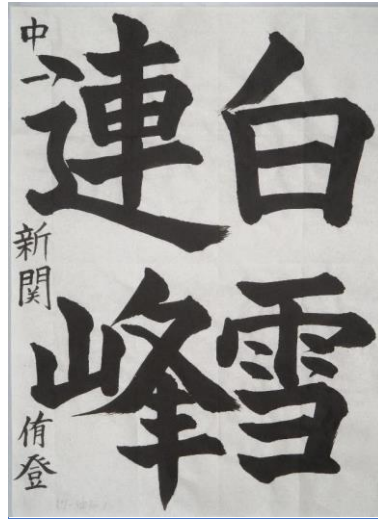 白雪
連峰
中一 新関 侑登